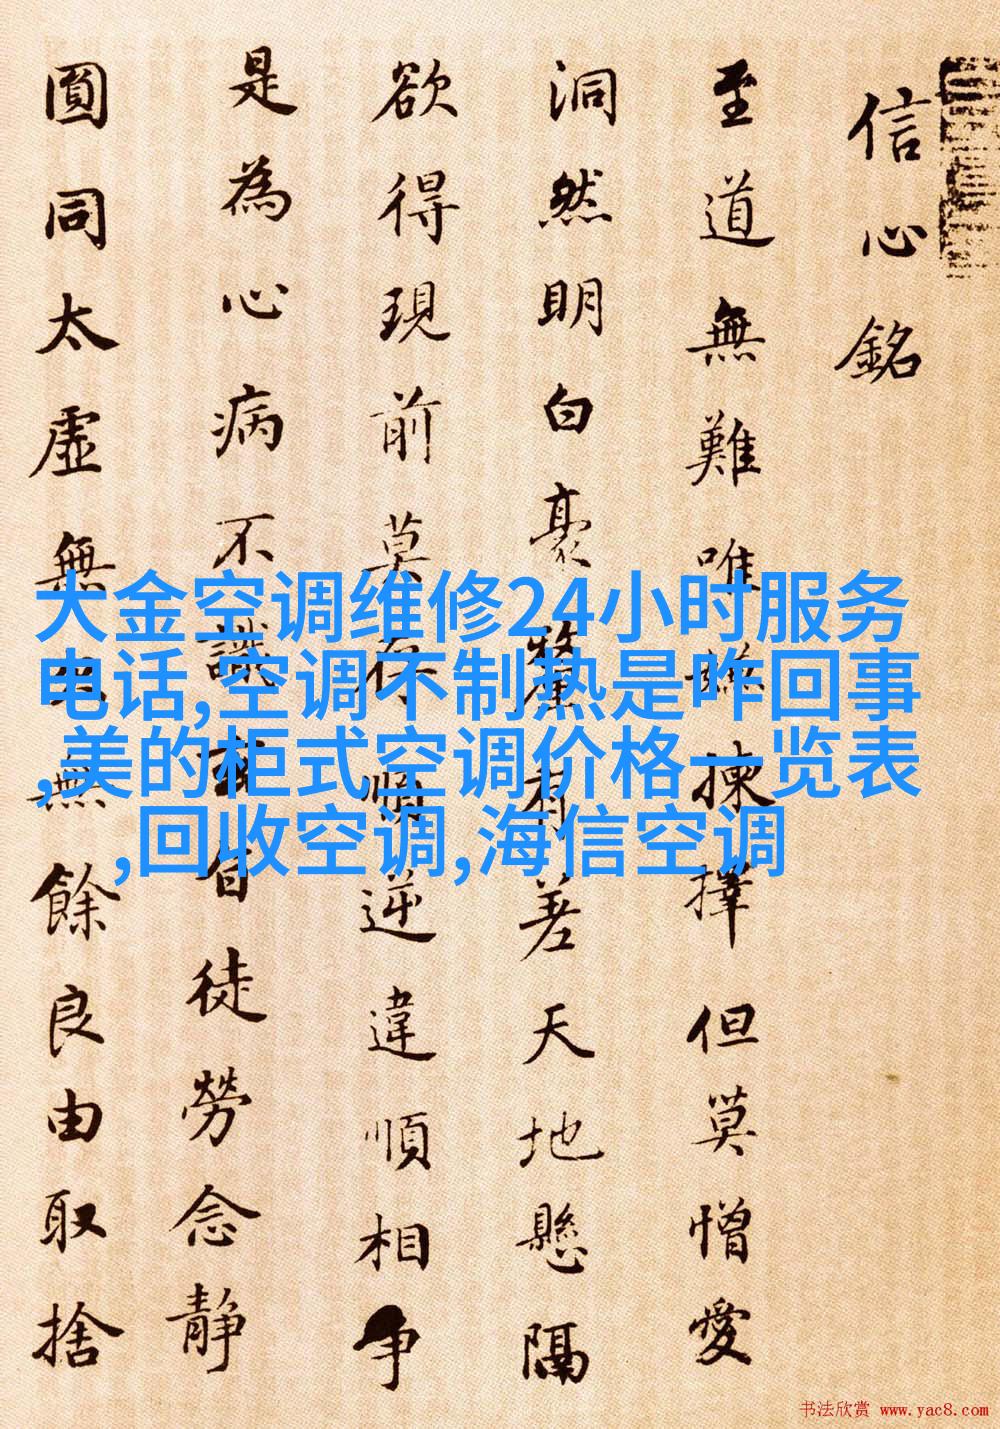 信心銘
至道無難唯嫌揀擇但莫憎愛
洞然明白豪釐有差天地懸隔
欲得現前莫存順逆違順相爭
是為心病不識玄旨徒勞念静
圓同太虛無欠無餘良由取捨
大金空调维修24小时服务
电话,空调不制热是咋回事
,美的柜式空调价格一览表
,回收空调,海信空调
书法欣赏 www.yac8.com